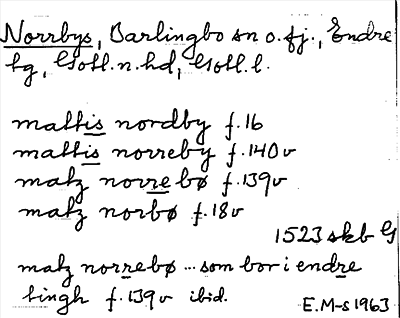 Norrbys, Barlingbo sn o. fj., Endre
tg, Gotl. n. hd, Gotl. l.
mattis nordby f. 16
mattis norreby f. 140v
matz norrebø f. 139v
matz norbø f. 18v
1523 skb G
matz norrebø ... som bor i endre
tingh f. 139v ibid.
E.M-s 1963